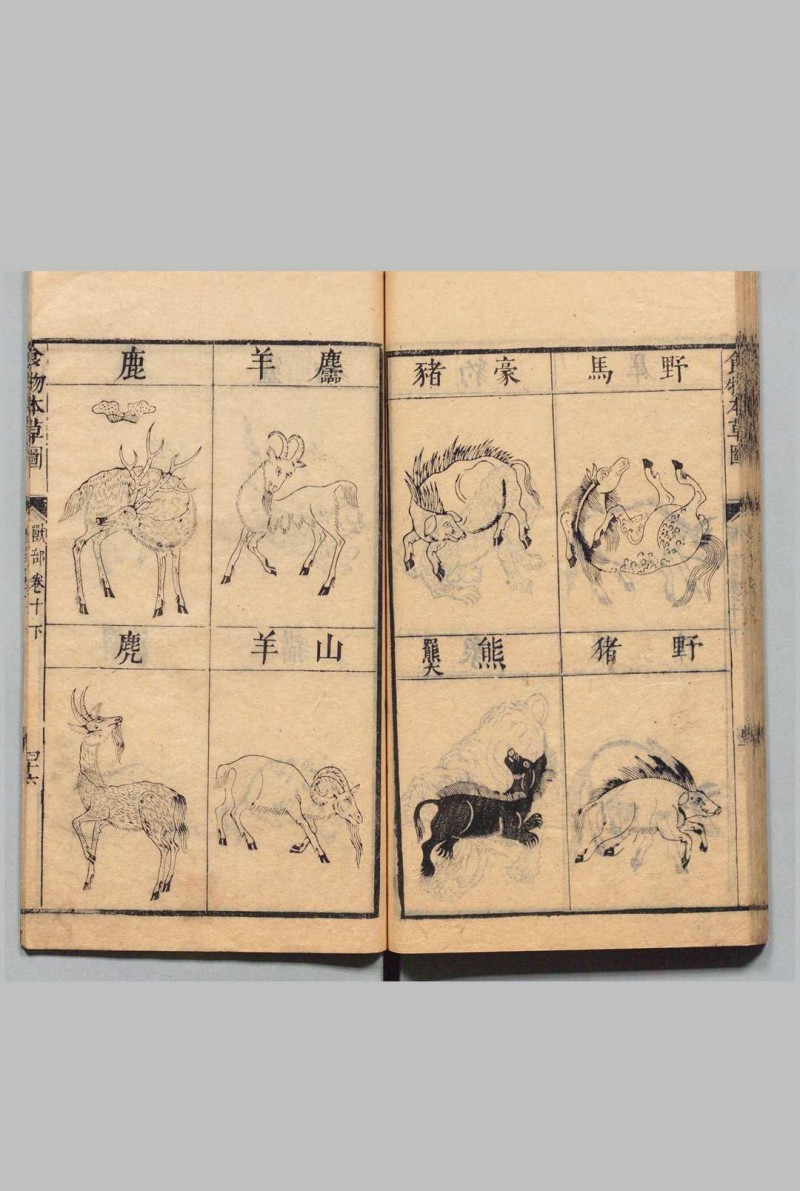 食物本草圖
野馬
豪豬
野豬
熊羆
麢羊
鹿
山羊
麂
食物本草圖
獸部卷十下
四十六